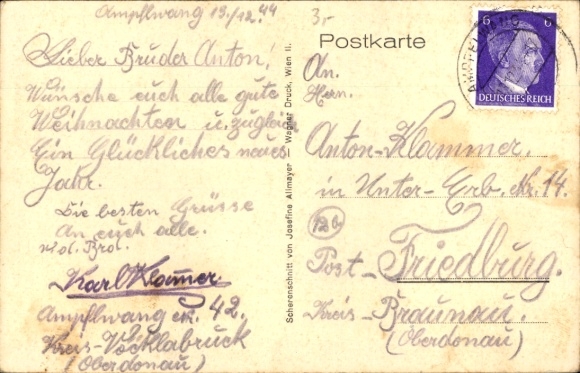 Ampflwang 19./12.44
Lieber Bruder Anton!
Wünsche euch alle gute
Weihnachten u. zugleich
Ein Glückliches neues
Jahr.
Die besten Grüsse
An euch alle.
Karl Klamer
Ampflwang 42.
Kreis-Vöcklabruck
(Oberdonau)
Scherenschnitt von Josefine Allmayer — Wagner Druck, Wien II.
3,-
Postkarte
6 6
DEUTSCHES REICH
An.
Herrn.
Anton-Klammer.
in Unter-Erb. Nr. 14.
12b
Post-Friedburg.
Kreis-Braunau.
(Oberdonau)